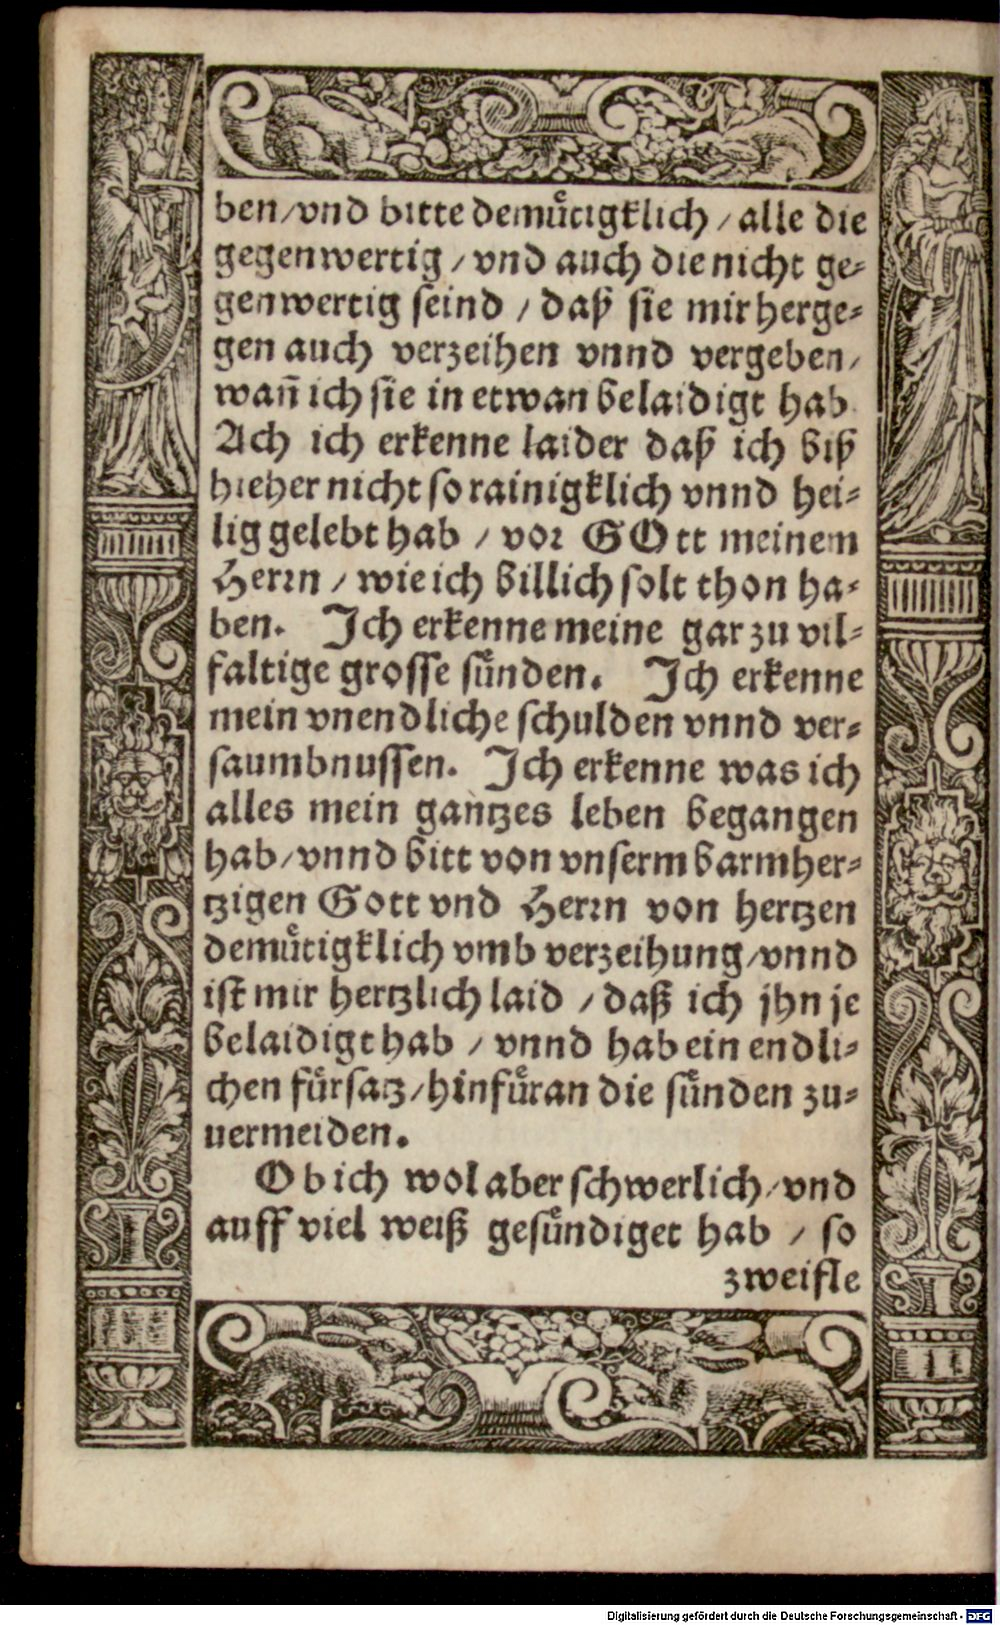 ben/vnd bitte demuͤtigklich / alle die
gegenwertig / vnd auch die nicht ge⸗
genwertig seind / daß sie mir herge⸗
gen auch verzeihen vnnd vergeben/
wañ ich sie in etwan belaidigt hab.
Ach ich erkenne laider daß ich biß
hieher nicht so rainigklich vnnd hei⸗
lig gelebt hab / vor GOtt meinem
Herrn / wie ich billich solt thon ha⸗
ben. Ich erkenne meine gar zu vil⸗
faltige grosse suͤnden. Ich erkenne
mein vnendliche schulden vnnd ver⸗
saumbnussen. Ich erkenne was ich
alles mein gantzes leben begangen
hab/vnnd bitt von vnserm barmher⸗
tzigen Gott vnd Herrn von hertzen
demuͤtigklich vmb verzeihung/vnnd
ist mir hertzlich laid / daß ich jhn je
belaidigt hab / vnnd hab ein endli⸗
chen fuͤrsatz/hinfuͤran die suͤnden zu⸗
uermeiden.
Ob ich wol aber schwerlich/vnd
auff viel weiß gesuͤndiget hab / so
zweifle
Digitalisierung gefördert durch die Deutsche Forschungsgemeinschaft - DFG